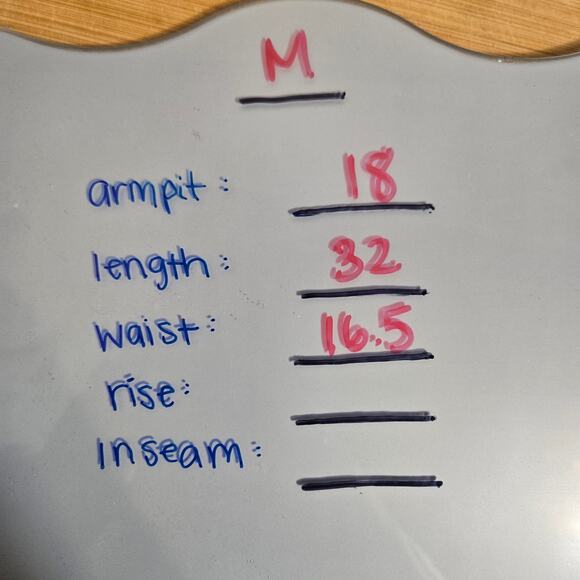 M
armpit: 18
length: 32
waist: 16.5
rise:
inseam: